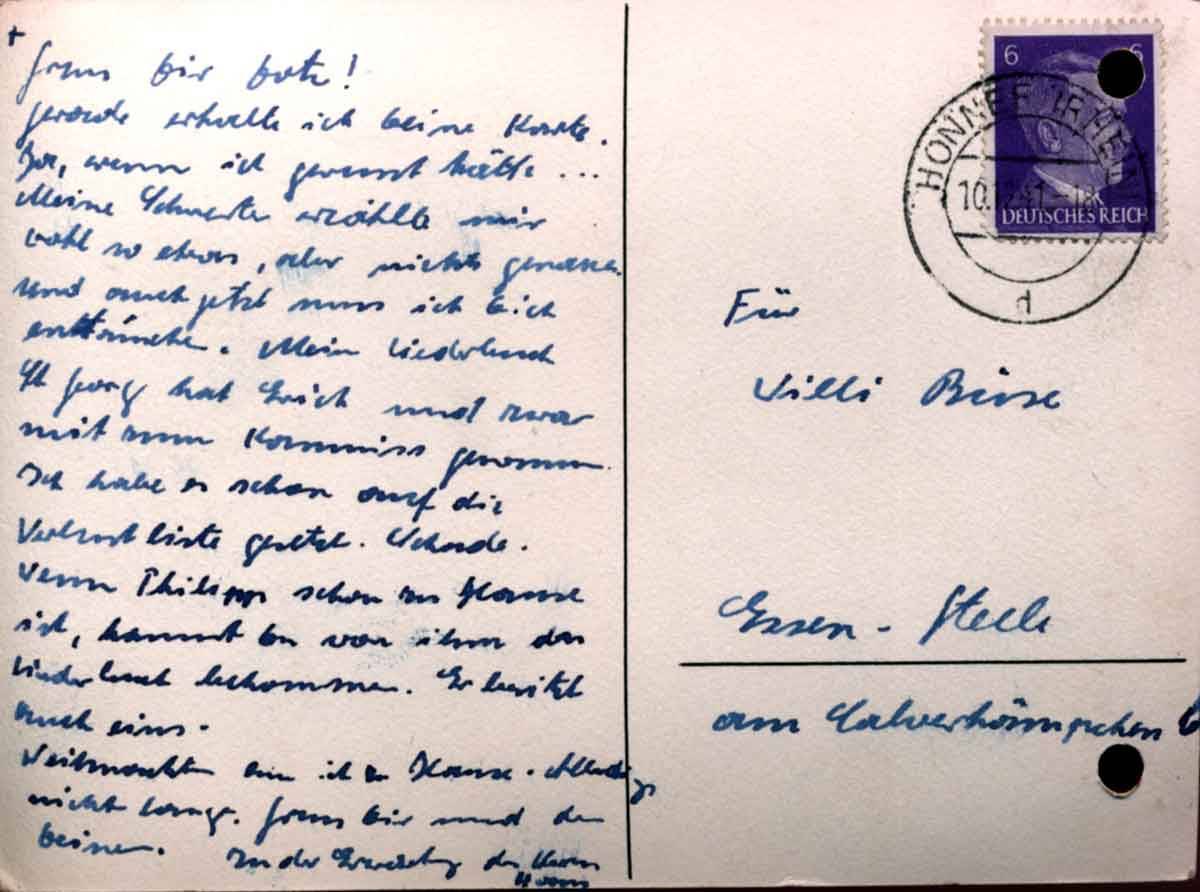 +
Gruss dir
Gerade erhalte ich deine Karte.
Ja, wenn ich gewusst hätte ...
Meine Schwester erzählte mir
wohl so etwas, aber nichts genaues.
Und auch jetzt muss ich dich
enttäuschen. Mein Liederbuch
St Georg hat Erich und zwar
mit zum Kommiss genommen.
Ich habe es schon auf die
Verlustliste gesetzt. Schade.
Wenn Philipp schon zu Hause
ist, kannst du von ihm das
Liederbuch bekommen. Er besitzt
auch eins.
Weihnachten bin ich zu Hause. Allerdings
nicht lange. Gruss dir und den
deinen. In der Erwartung des Herrn
Hans
6 6
DEUTSCHES REICH
HONNEF (RHEIN)
10.12.41-18
d
Für
Willi
Essen - Steele
am